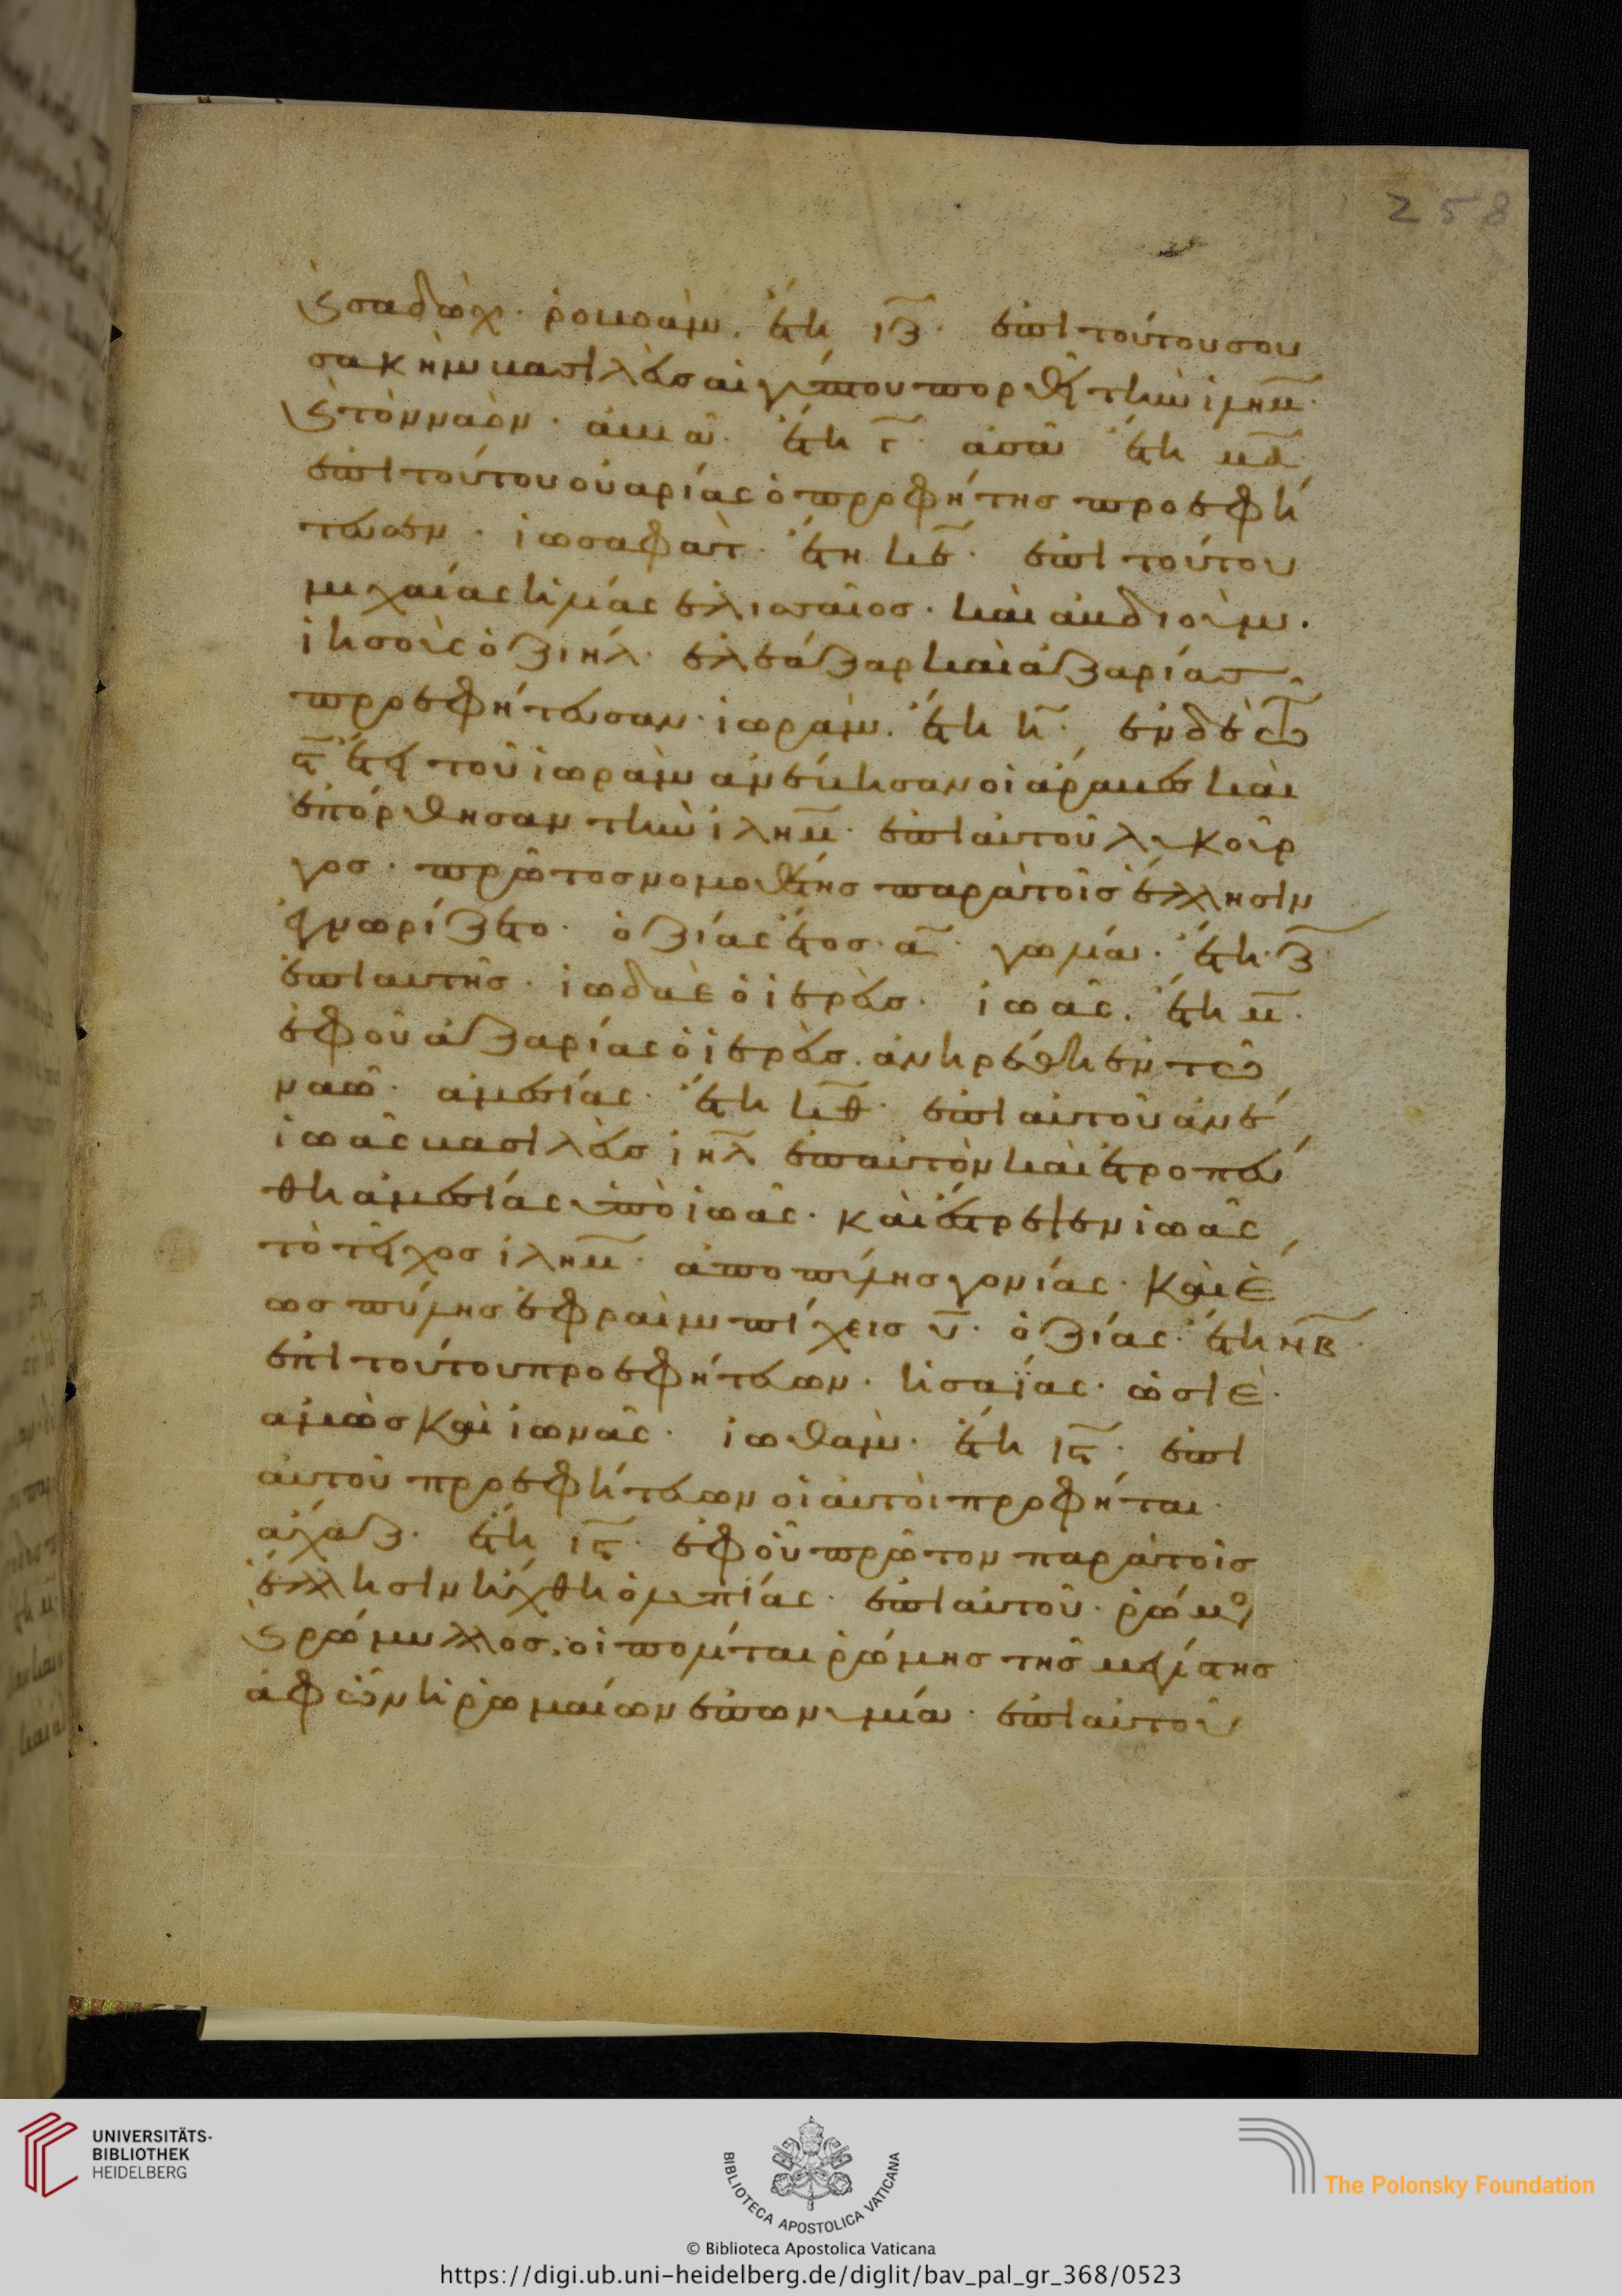 258
ϛ σαδώχ· ῥοβοὰμ. ἔτη ιζ̅· ἐπὶ τούτου σου
σακὴμ βασιλεὺς αἰγύπτου πορθεῖ τὴν ἰλημ̅·
ϛ τὸν ναόν· ἀβιὰ. ἔτη γ̅· ἀσὰ ἔτη μα̅
ἐπὶ τούτου οὐαρίας ὁ προφήτης προεφή
τευσεν· ἰωσαφὰτ· ἔτη κε̅· ἐπὶ τούτου
μιχαίας ἠλίας ἐλισσαῖος· καὶ ἀβδιοὺμ.
ἰησοῦς ὀζιήλ· ἐλεάζαρ καὶ ἀζαρίας
προεφήτευσαν· ἰωρὰμ. ἔτη η̅· ἐν δὲ τῶ
ε̅ ἔτει τοῦ ἰωρὰμ ἀνέβησαν οἱ ἄραβες καὶ
ἐπόρθησαν τὴν ἰλημ̅· ἐπὶ αὐτοῦ λυκοῦρ
γος· πρῶτος νομοθέτης παρὰ τοῖς ἕλλησιν
ἐγνωρίζετο· ὀζίας ἔτος· α̅· γωλία· ἔτη· ζ̅
ἐπὶ αὐτῆς· ἰωδαὲ ὁ ἱερεύς· ἰωὰς. ἔτη μ̅·
ἐφ οὗ ἀζαρίας ὁ ἱερεύς. ἀνηρέθη ἐν τῶ
ναῶ· ἀμεσίας· ἔτη κθ̅· ἐπὶ αὐτοῦ ἀνέβη
ἰωὰς βασιλεὺς ἰηλ̅ ἐπ αὐτὸν καὶ ἐτροπώ
θη ἀμεσίας ὑπὸ ἰωᾶς· καὶ καθεῖλεν ἰωᾶς
τὸ τεῖχος ἰλημ̅· ἀπὸ πύλης γονίας· καὶ ἕ
ως πύλης ἐφραὶμ πίχεις υ̅· ὀζίας· ἔτη νβ̅·
ἐπὶ τούτου προεφήτευον· ἡσαΐας· ὡσιὲ·
ἀμὼς καὶ ἰωνᾶς· ἰωθαμ· ἔτη ις̅· ἐπὶ
αὐτοῦ προεφήτευον οἱ αὐτοὶ προφήται·
ἀχάζ· ἔτη ις̅· ἐφ οὗ πρῶτον παρὰ τοῖς
ἕλλησιν ἤχθη ὀλυμπίας· ἐπὶ αὐτοῦ· ῥώμος
ϛ ῥώμυλλος. οἱ πολῖται ῥώμης τῆς μεγίστης
ἀφ ὧν ἡ ῥωμαίων ἐπωνυμία· ἐπὶ αὐτοῦ
UNIVERSITÄTS-
BIBLIOTHEK
HEIDELBERG
BIBLIOTECA APOSTOLICA VATICANA
The Polonsky Foundation
© Biblioteca Apostolica Vaticana
https://digi.ub.uni-heidelberg.de/diglit/bav_pal_gr_368/0523